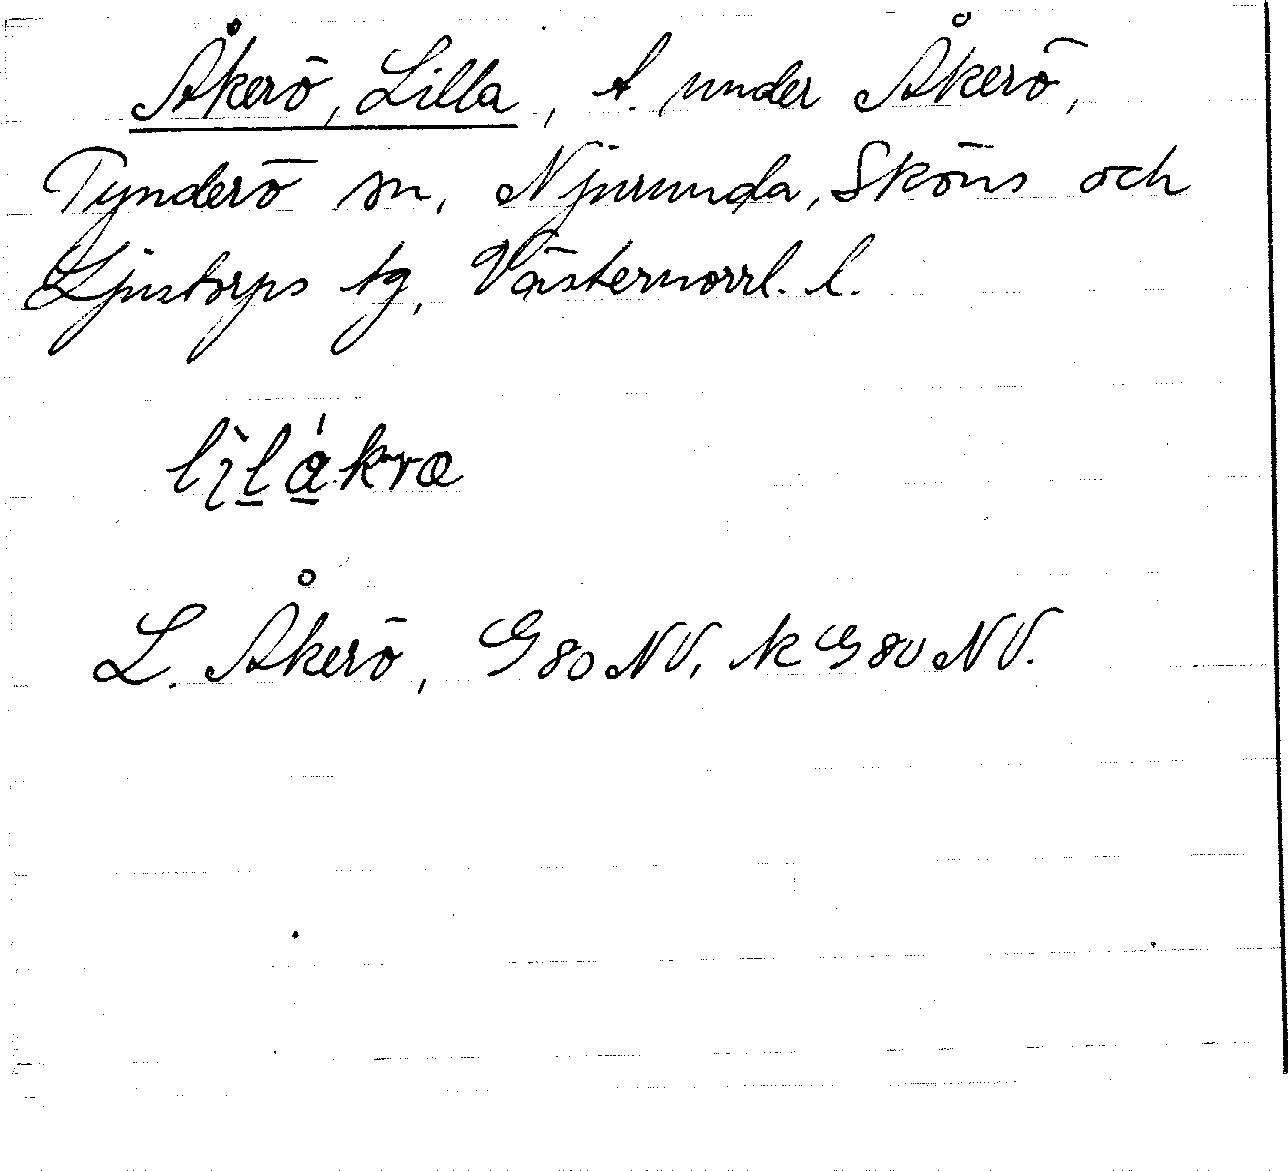 Åkerö, Lilla, t. under Åkerö,
Tynderö sn, Njurunda, Sköns och
Ljustorps tg, Västernorrl. l.
L. Åkerö, G 80 NV, k G 80 NV.